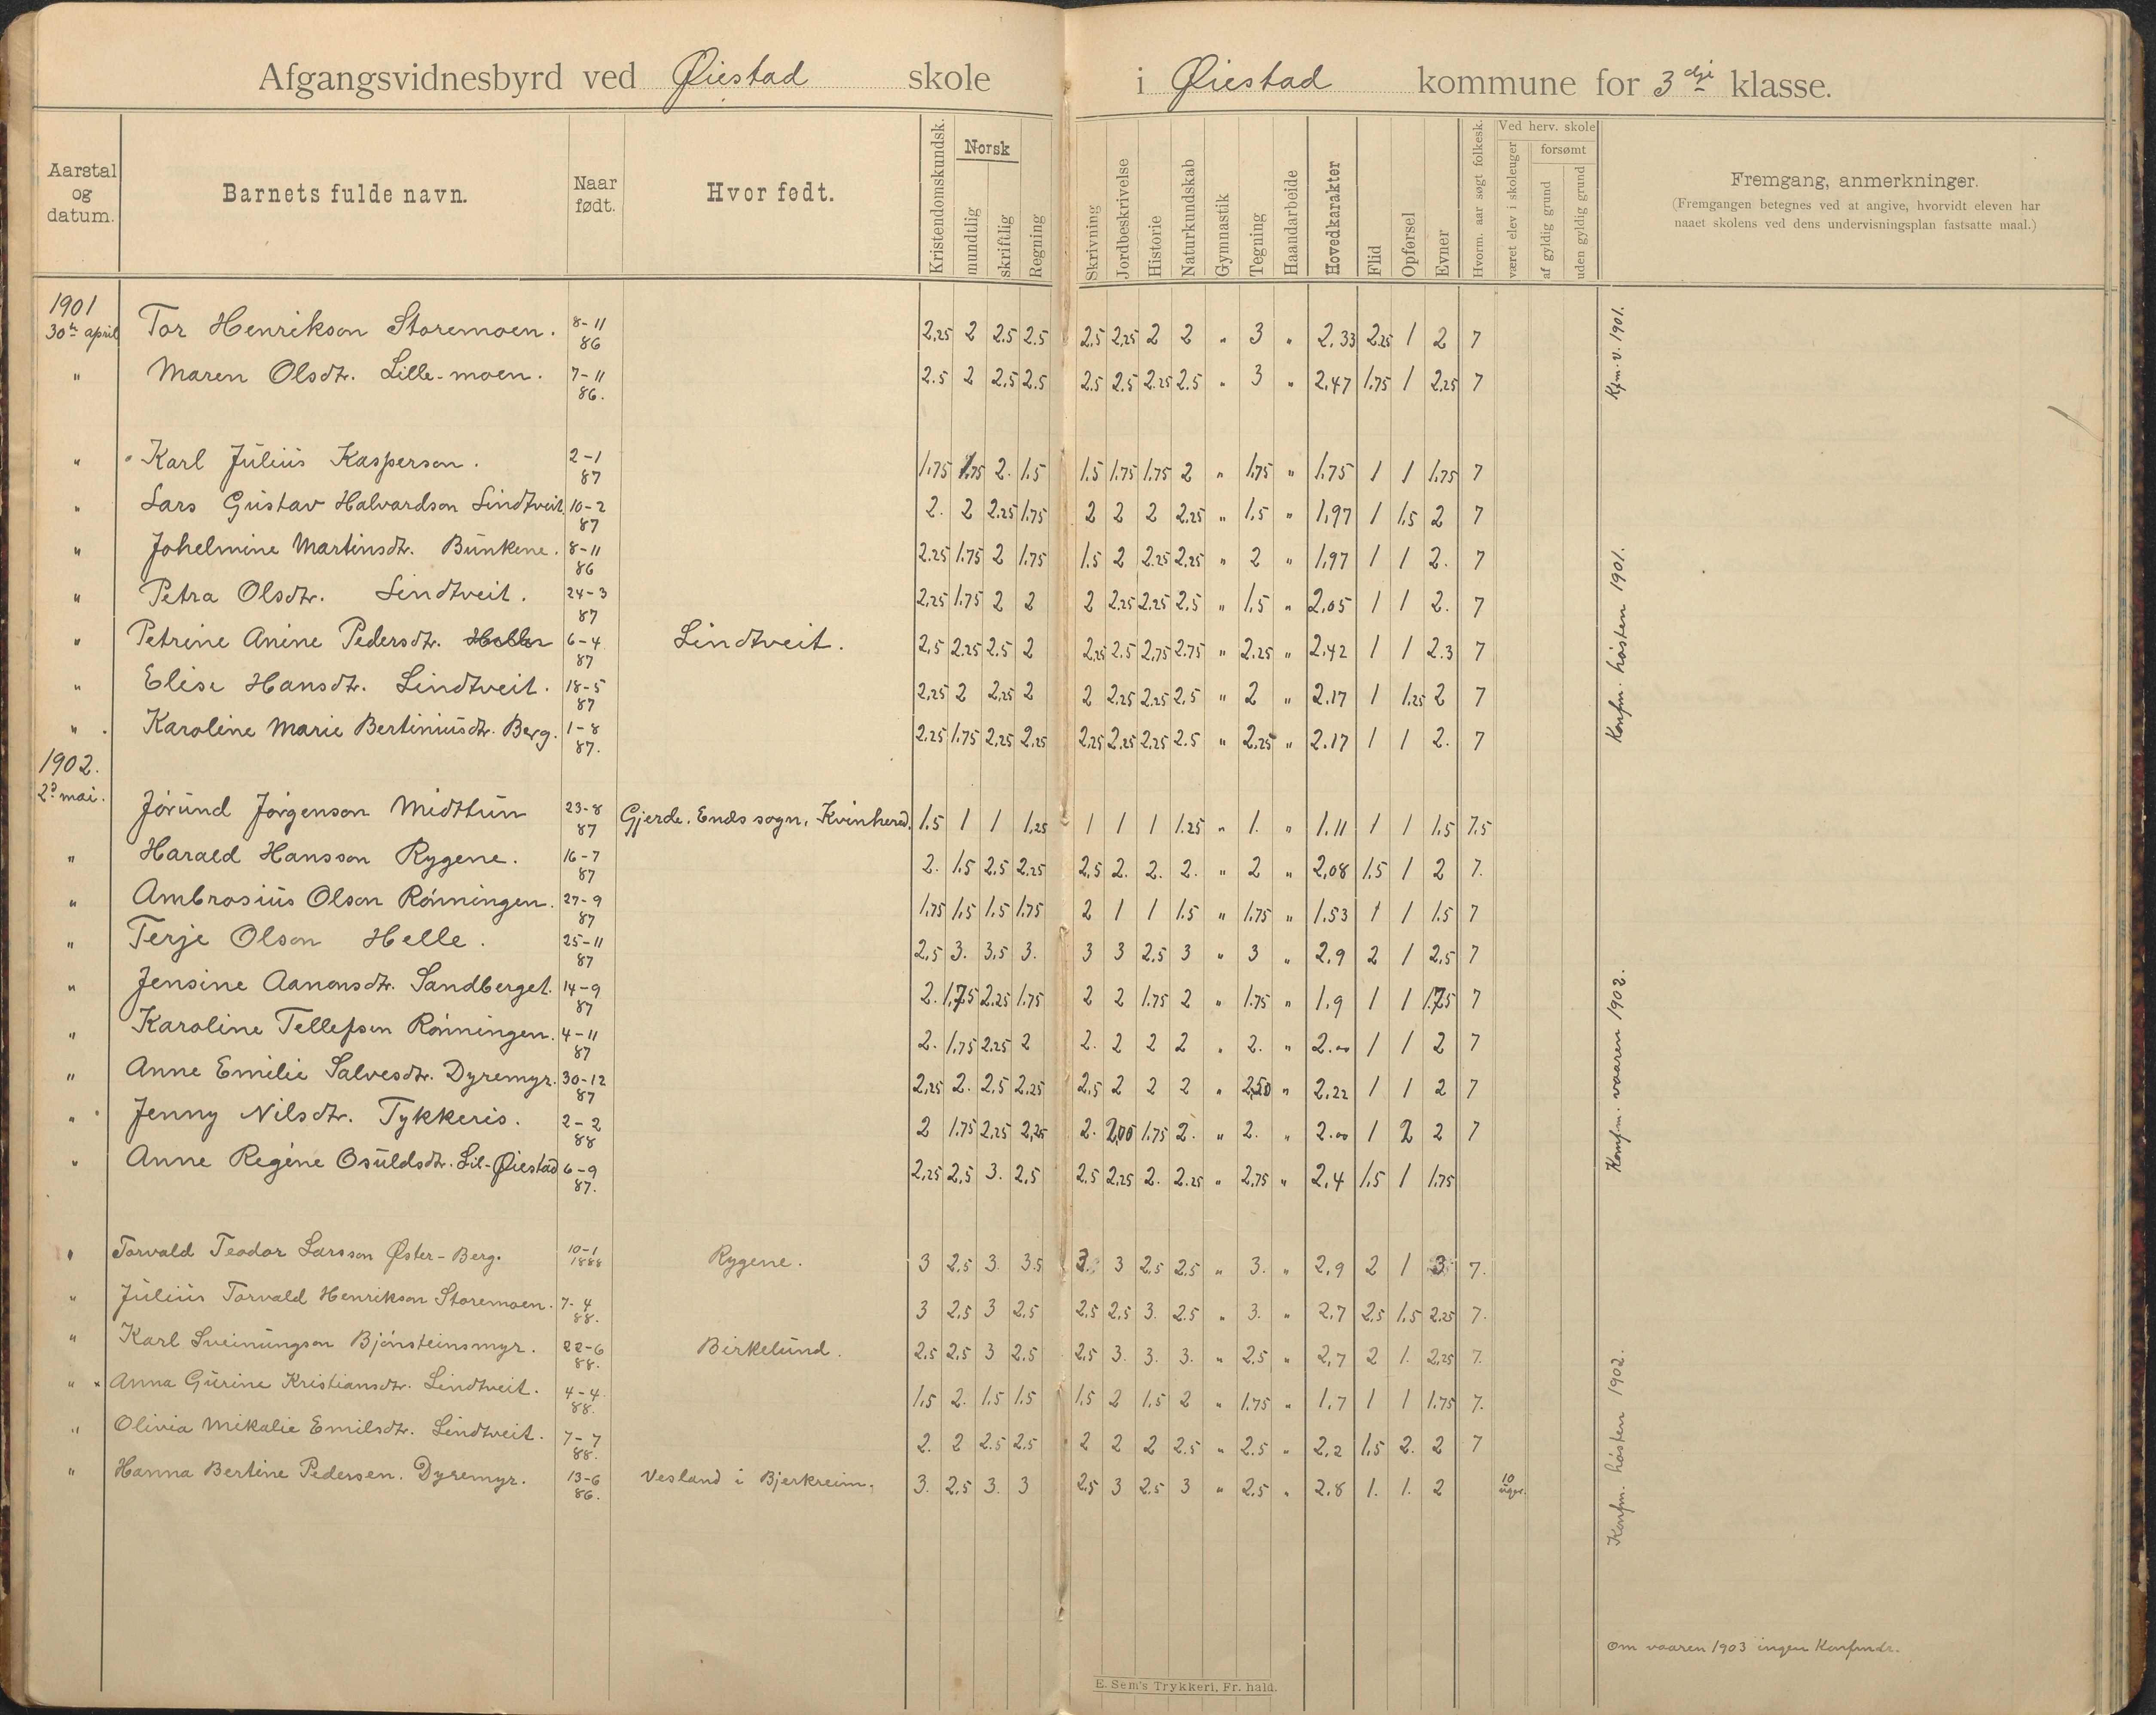 Afgangsvidnesbyrd ved Øiestad skole i Øiestad kommune for 3dje klasse.
Aarstal og datum. Barnets fulde navn. Naar født. Hvor født. Kristendomskundsk. Norsk mundtlig skriftlig Regning Skrivning Jordbeskrivelse Historie Naturkundskab Gymnastik Tegning Haandarbeide Hovedkarakter Flid Opførsel Evner Hvorm. aar søgt folkesk. Ved herv. skole været elev i skoleuger forsømt af gyldig grund uden gyldig grund Fremgang, anmerkninger.
(Fremgangen betegnes ved at angive, hvorvidt eleven har
naaet skolens ved dens undervisningsplan fastsatte maal.)
1901
30te april Tor Henrikson Storemoen. 8-11 86 2,25 2 2.5 2.5 2.5 2,25 2 2 " 3 " 2.33 2.25 1 2 7
" Maren Olsdtr. Lille-moen. 7-11 86. 2.5 2 2.5 2.5 2.5 2.5 2.25 2.5 " 3 " 2.47 1.75 1 2.25 7
Kfm. v. 1901.
" Karl Julius Kasperson. 2-1 87 1.75 1.75 2. 1.5 1.5 1.75 1.75 2 " 1.75 " 1.75 1 1 1.75 7
" Lars Gustav Halvardson Lindtveit. 10-2 87 2. 2 2.25 1.75 2 2 2 2.25 " 1.5 " 1.97 1 1.5 2 7
" Johelmine Martinsdtr. Bunkene. 8-11 86 2.25 1.75 2 1.75 1.5 2 2.25 2.25 " 2 " 1.97 1 1 2. 7
" Petra Olsdtr. Lindtveit. 24-3 87 2.25 1.75 2 2 2 2.25 2.25 2.5 " 1.5 " 2.05 1 1 2. 7
" Petrine Anine Pedersdtr. 6-4 87 Lindtveit. 2.5 2.25 2.5 2 2.25 2.5 2.75 2.75 " 2.25 " 2.42 1 1 2.3 7
" Elise Hansdtr. Lindtveit. 18-5 87 2.25 2 2.25 2 2 2.25 2.25 2.5 " 2 " 2.17 1 1.25 2 7
" Karoline Marie Bertiniusdtr. Berg. 1-8 87. 2.25 1.75 2.25 2.25 2.25 2.25 2.25 2.5 " 2.25 " 2.17 1 1 2. 7
Konfm. høsten 1901.
1902.
2? mai. Jørund Jørgenson Midttun 23-8 87 Gjerde. Enes sogn, Kvinhered. 1.5 1 1 1.25 1 1 1 1.25 " 1. " 1.11 1 1 1.5 7.5
" Harald Hansson Rygene. 16-7 87 2. 1.5 2.5 2.25 2.5 2. 2. 2. " 2 " 2.08 1.5 1 2 7.
" Ambrosius Olson Rønningen. 27-9 87 1.75 1.5 1.5 1.75 2 1 1 1.5 " 1.75 " 1.53 1 1 1.5 7
" Terje Olson Helle. 25-11 87 2.5 3. 3.5 3. 3 3 2.5 3 " 3 " 2.9 2 1 2.5 7
" Jensine Aanonsdtr. Sandberget. 14-9 87 2. 1.75 2.25 1.75 2 2 1.75 2 " 1.75 " 1.9 1 1 1.75 7
" Karoline Tellefsen Rønningen. 4-11 87 2. 1.75 2.25 2 2. 2 2 2 " 2. " 2.00 1 1 2 7
" Anne Emilie Salvesdtr. Dyremyr. 30-12 87 2.25 2. 2.5 2.25 2.5 2 2 2 " 2.50 " 2.22 1 1 2 7
" Jenny Nilsdtr. Tykkeris. 2-2 88 2 1.75 2.25 2.25 2. 2,00 1.75 2. " 2. " 2.00 1 2 2 7
" Anne Regine Osuldsdtr. Lil-Øiestad 6-9 87. 2.25 2.5 3. 2.5 2.5 2.25 2. 2.25 " 2.75 " 2.4 1.5 1 1.75
Konfm. vaaren 1902.
" Torvald Teodor Larsson Øster-Berg. 10-1 1888 Rygene. 3 2.5 3. 3.5 3. 3 2.5 2.5 " 3. " 2.9 2 1 3 7.
" Julius Torvald Henrikson Storemoen. 7-4 88. 3 2.5 3 2.5 2.5 2.5 3. 2.5 " 3. " 2.7 2.5 1.5 2.25 7.
" Karl Sveinungson Bjønsteinsmyr. 22-6 88. Birkelund. 2.5 2.5 3 2.5 2.5 3. 3. 3. " 2.5 " 2.7 2 1. 2.25 7.
" × Anna Gurine Kristiansdtr. Lindtveit. 4-4 88. 1.5 2. 1.5 1.5 1.5 2 1.5 2 " 1.75 " 1.7 1 1 1.75 7.
" Olivia Mikalie Emilsdtr. Lindtveit. 7-7 88. 2. 2 2.5 2.5 2 2 2 2.5 " 2.5 " 2.2 1.5 2. 2 7
" Hanna Bertine Pedersen. Dyremyr. 13-6 86. Vesland i Bjerkreim. 3. 2.5 3. 3 2.5 3 2.5 3 " 2.5 " 2.8 1. 1. 2 10 uger.
Konfm. høsten 1902.
Om vaaren 1903 ingen Konfmdr.
E. Sem's Trykkeri, Fr. hald.